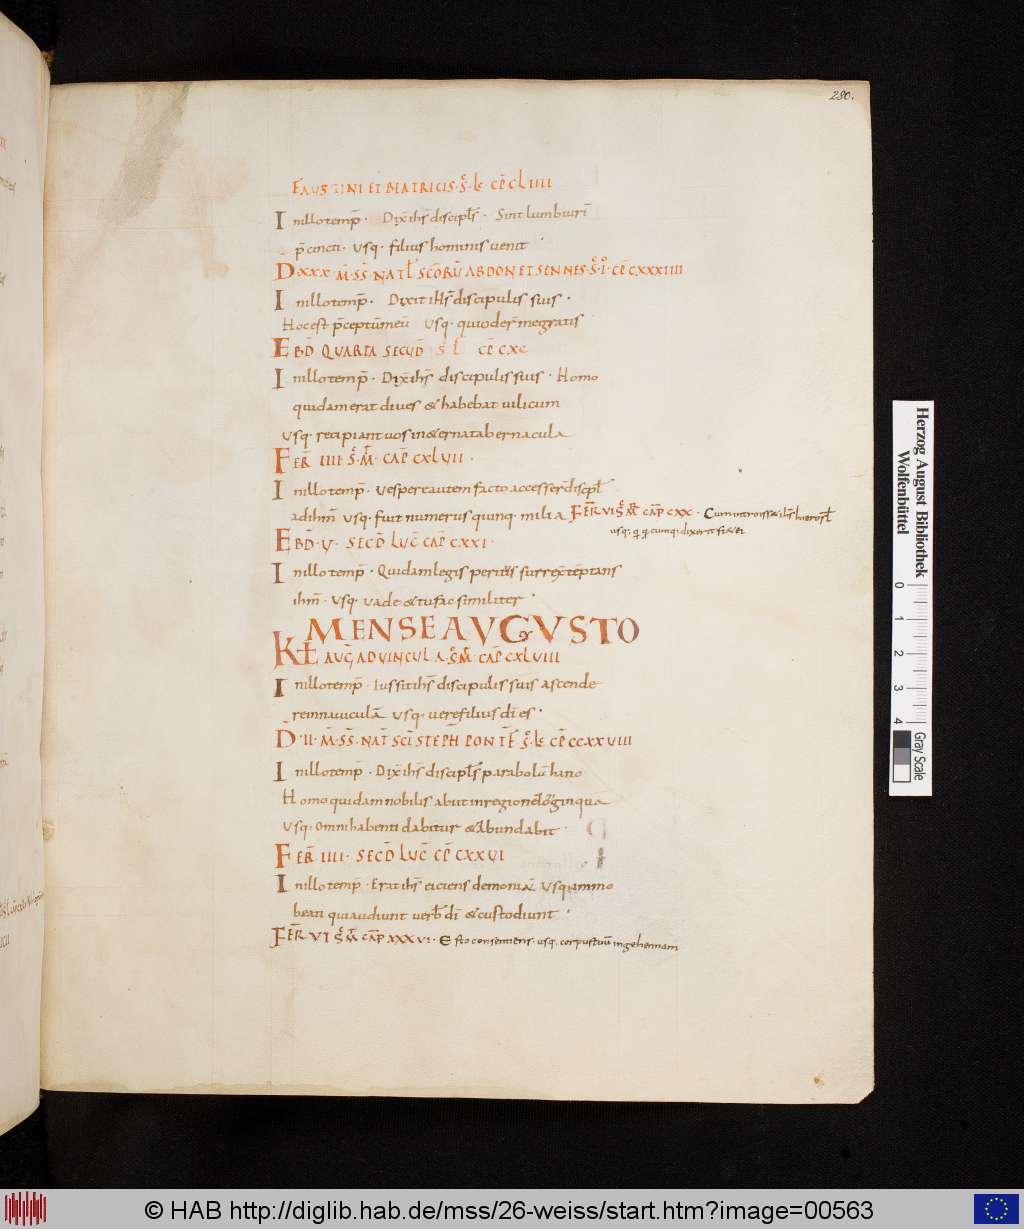 280.
FAUSTINI ET BEATRICIS · S̄ · lc̄ CP̄ CLIIII
In illo temp̄ · Dix̄ ih̄s discipl̄s · Sint lumbi uri̅
p̄cincti · Usq · filius hominis uenit
D XXX M̄ · SS̄ NATL̄ SC̄ORŪ ABDON ET SENNES · S̄ · I̅ · CP̄ CXXXIIII
In illo temp̄ · Dixit ih̄s discipulis suis ·
Hoc est p̄ceptū meū Usq · qui oder̄ me gratis
EBD̄ QUARTA SECUD̄ S̄ L̄ CP̄ CXC
In illo temp̄ · Dix̄ ih̄s discipulis suis · Homo
quidam erat diues & habebat uilicum
Usq · recipiant uos in &erna tabernacula
FER̄ IIII · S̄ · M̄ · CAP̄ CXLVII ·
In illo temp̄ · Uespere autem facto accesser̄ discipl̄
ad ihm̄ Usq · fuit numerus quinq · milia FER̄ VI S̄ M̄ CAP̄ CXX · Cum introiss& ih̄s hierosl̄
usq · q̄ q̄cumq · dixerit fi&ei
EBD · V · SECD̄ LUC̄ CAP̄ CXXI ·
In illo temp̄ · Quidam legis peritus surrex̄ tēptans
ihm̄ · Usq · Uade & tu fac similiter ·
MENSE AVGVSTO
KL̄ AUḠ AD VINCULA · S̄ M̄ CAP̄ CXLVIII
In illo temp̄ · Iussit ih̄s discipulis suis ascende
re in nauiculā Usq · uere filius dī es ·
D̄ · II · M̄ · SS̄ · NAT̄ SCĪ STEPH̄ PONT̄F̄ S̄ · lc̄ CP̄ CCXXVIII
In illo temp̄ · Dix̄ ih̄s discipl̄s parabolā hanc
Homo quidam nobilis abiit in regionē lōginqua
Usq · Omni habenti dabitur & abundabit ·
FER̄ IIII · SECD̄ LUC̄ CP̄ CXXVI
In illo temp̄ · Erat ih̄s eiciens demoniā Usq · immo
beati qui audiunt uerb̄ dī & custodiunt ·
FER̄ VI S̄ M̄ CAP̄ XXXVI · Esto consentiens · usq · corpus tuū in gehennam
Herzog August Bibliothek
Wolfenbüttel
0 1 2 3 4
Gray Scale
© HAB http://diglib.hab.de/mss/26-weiss/start.htm?image=00563